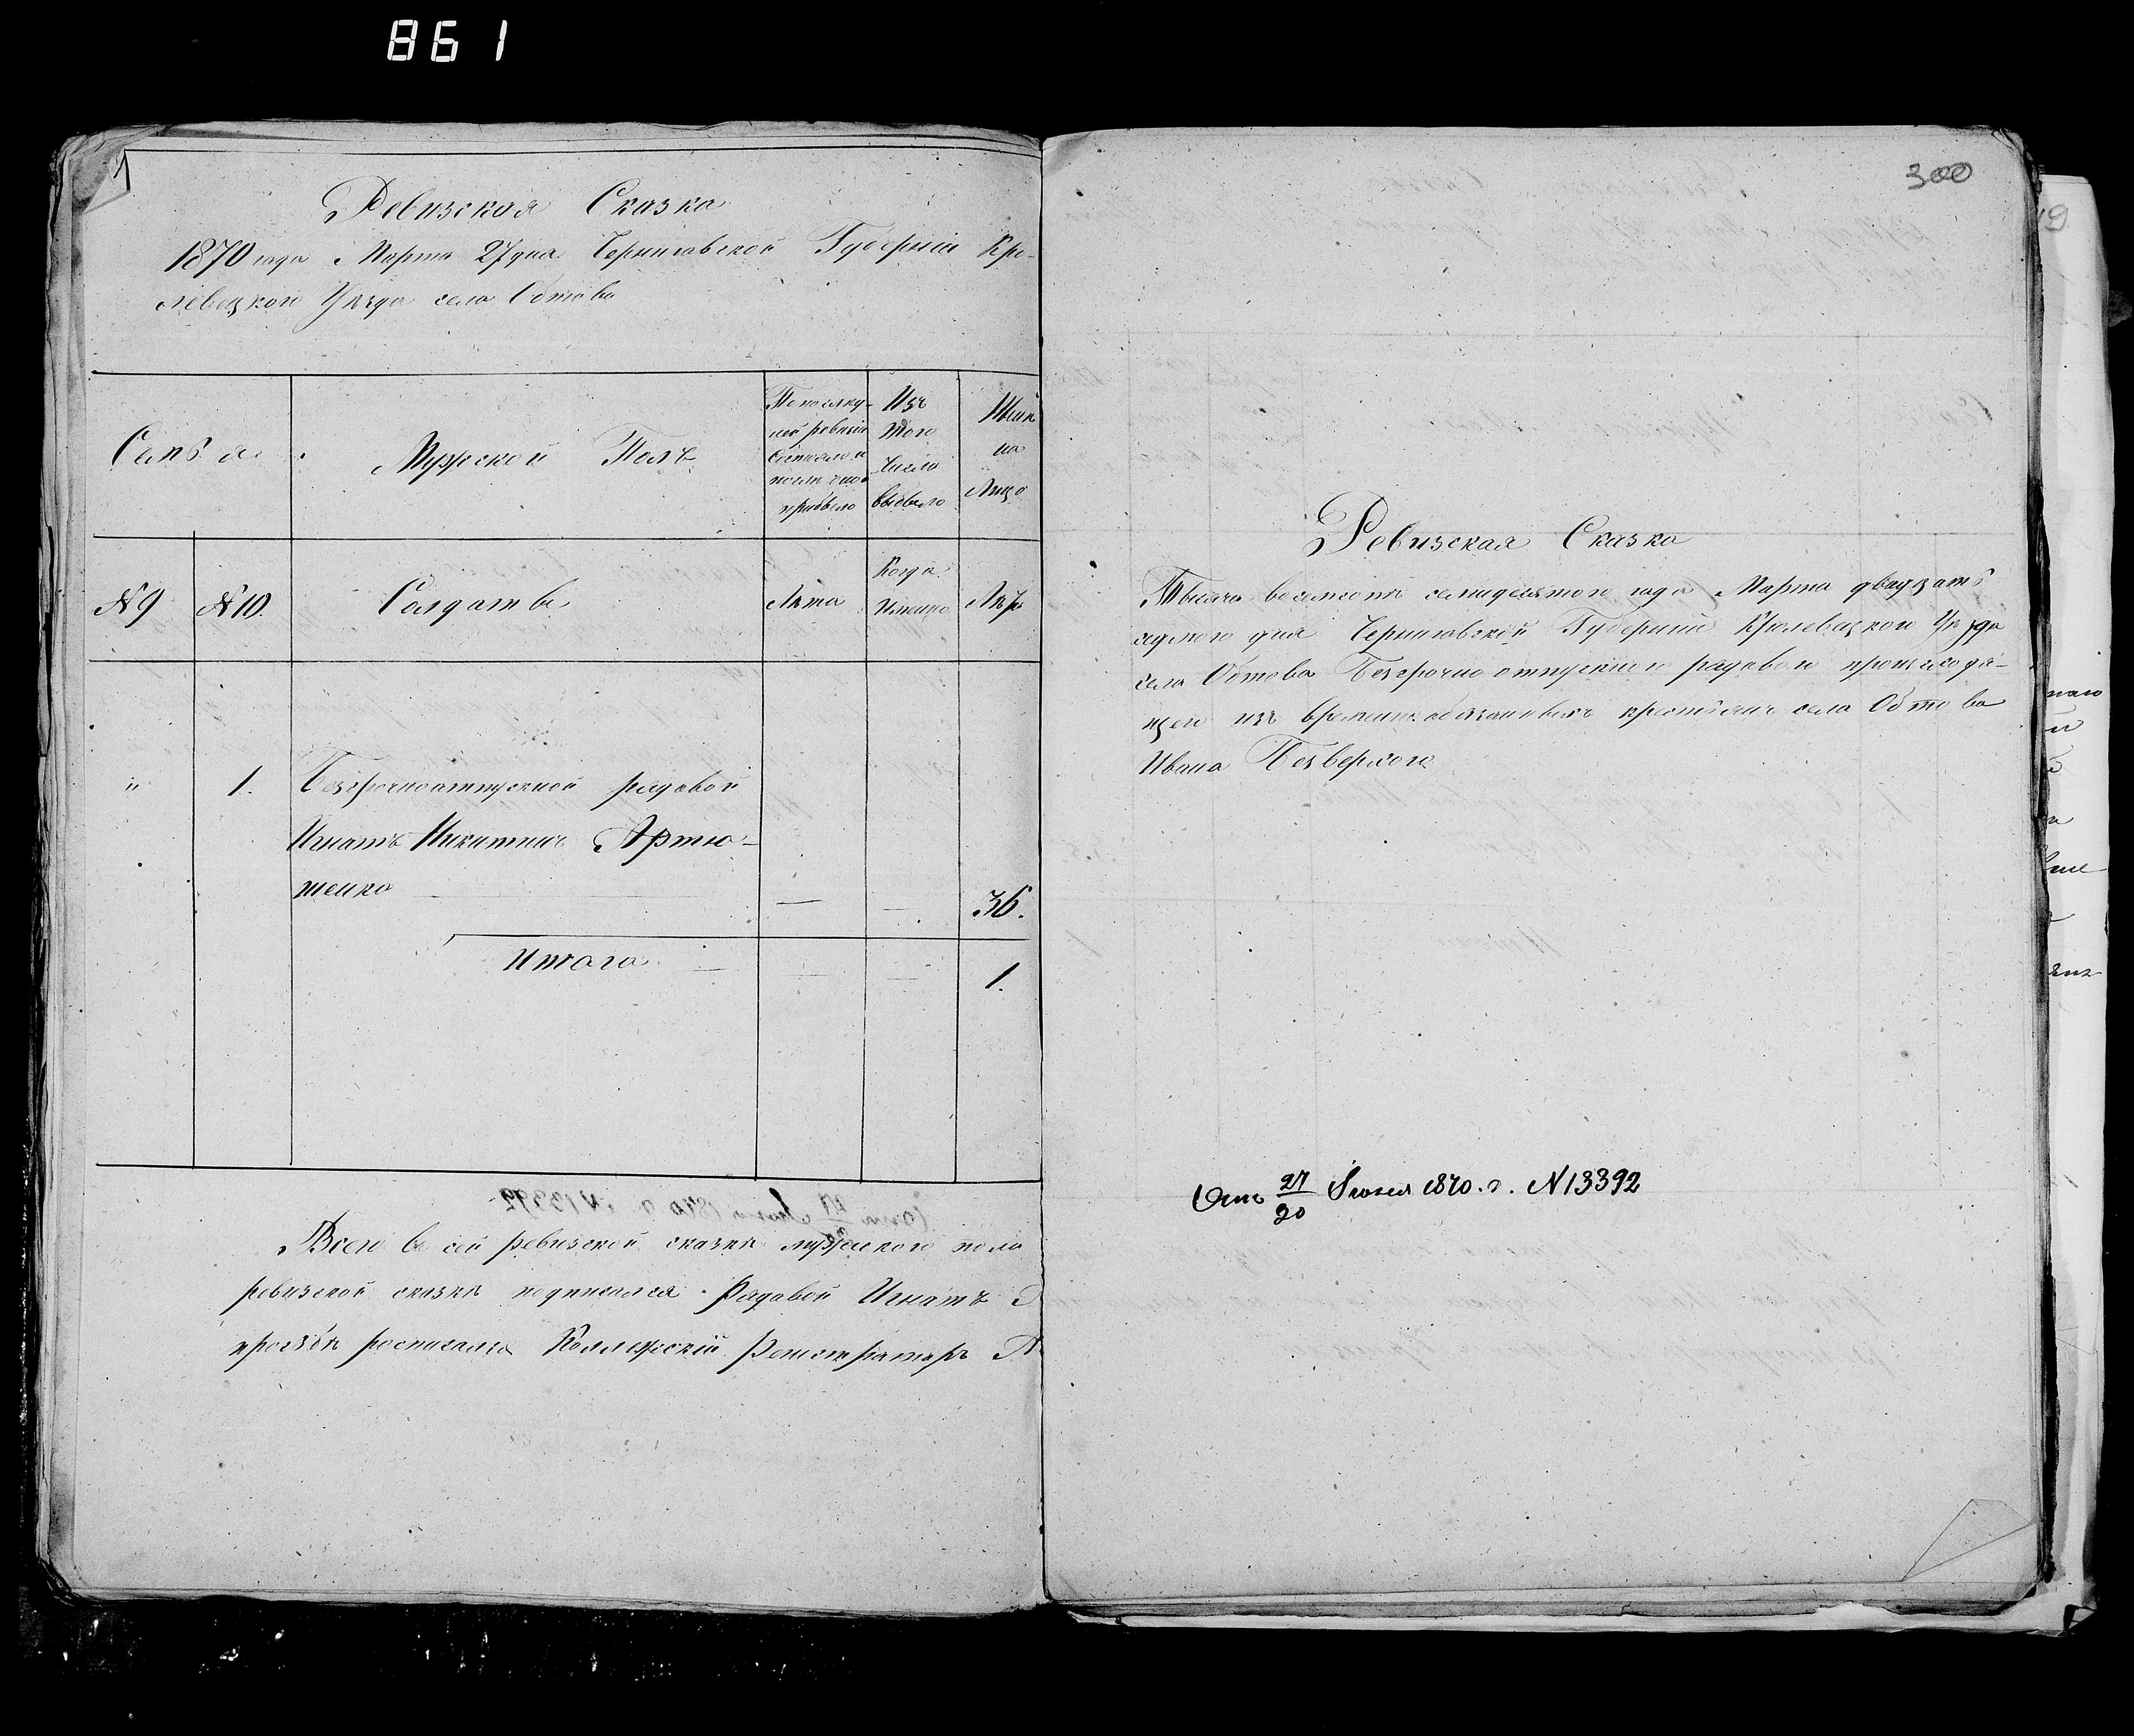 861
1
Ревизская Сказка
1870 года Марта 27 дня Черниговской Губерніи Кро-
левецкого Уѣзда села Обтова
Семья
Мужской Полъ
По послѣд-
ней ревизіи
состояло и
послѣ того
прибыло
Изъ
того
числа
выбыло
Нын
на
Лицо
№ 9
№ 10.
Солдатъ
Лѣта
Когда
Именно
Лѣт
"
1.
Безсрочноотпускной рядовой
Игнатъ Никитинъ Артю-
шенко
36.
Итого
1.
Всего въ сей ревизской сказкѣ мужского пола
ревизской сказкѣ подписался Рядовой Игнатъ
прозьбѣ росписался Коллежскій Регистраторъ
300
Ревизская Сказка
Тысяча восемсотъ семидесятого года Марта двадцать
седмого дня Черниговской Губерніи Кролевецкого Уѣзда
села Обтова Безсрочно отпускного рядового происходя-
щего изъ временнообязанныхъ крестьянъ села Обтова
Ивана Безверхого
От 27/30 Іюня 1870. г. N 13392